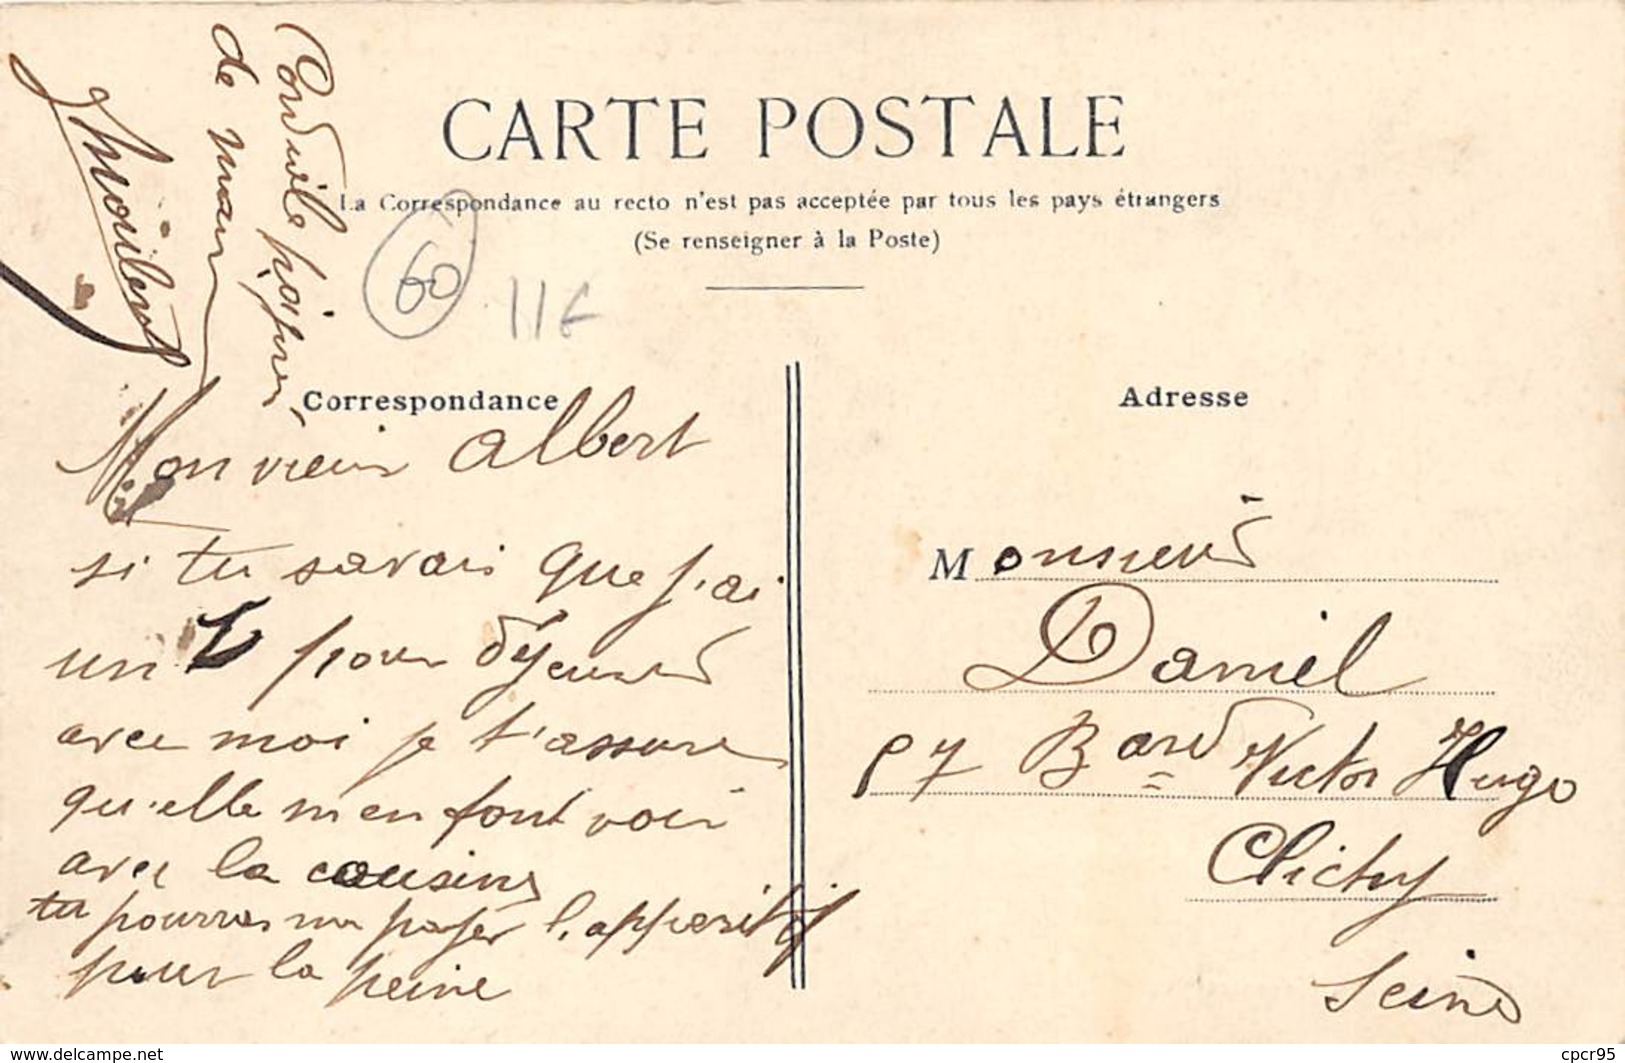 CARTE POSTALE
La Correspondance au recto n'est pas acceptée par tous les pays étrangers
(Se renseigner à la Poste)
60
11€
Correspondance
Adresse
Mon vieux Albert
si tu savais que j'ai
un pour déjeuner
avec moi je t'assure
qu'elle m'en font voir
avec la cousine
tu pourras me payer l'apperitif
pour la peine
Cordiale poignée
de main
Monsieur
Daniel
57 Bard Victor Hugo
Clichy
Seine
http://www.delcampe.net
cpcr95